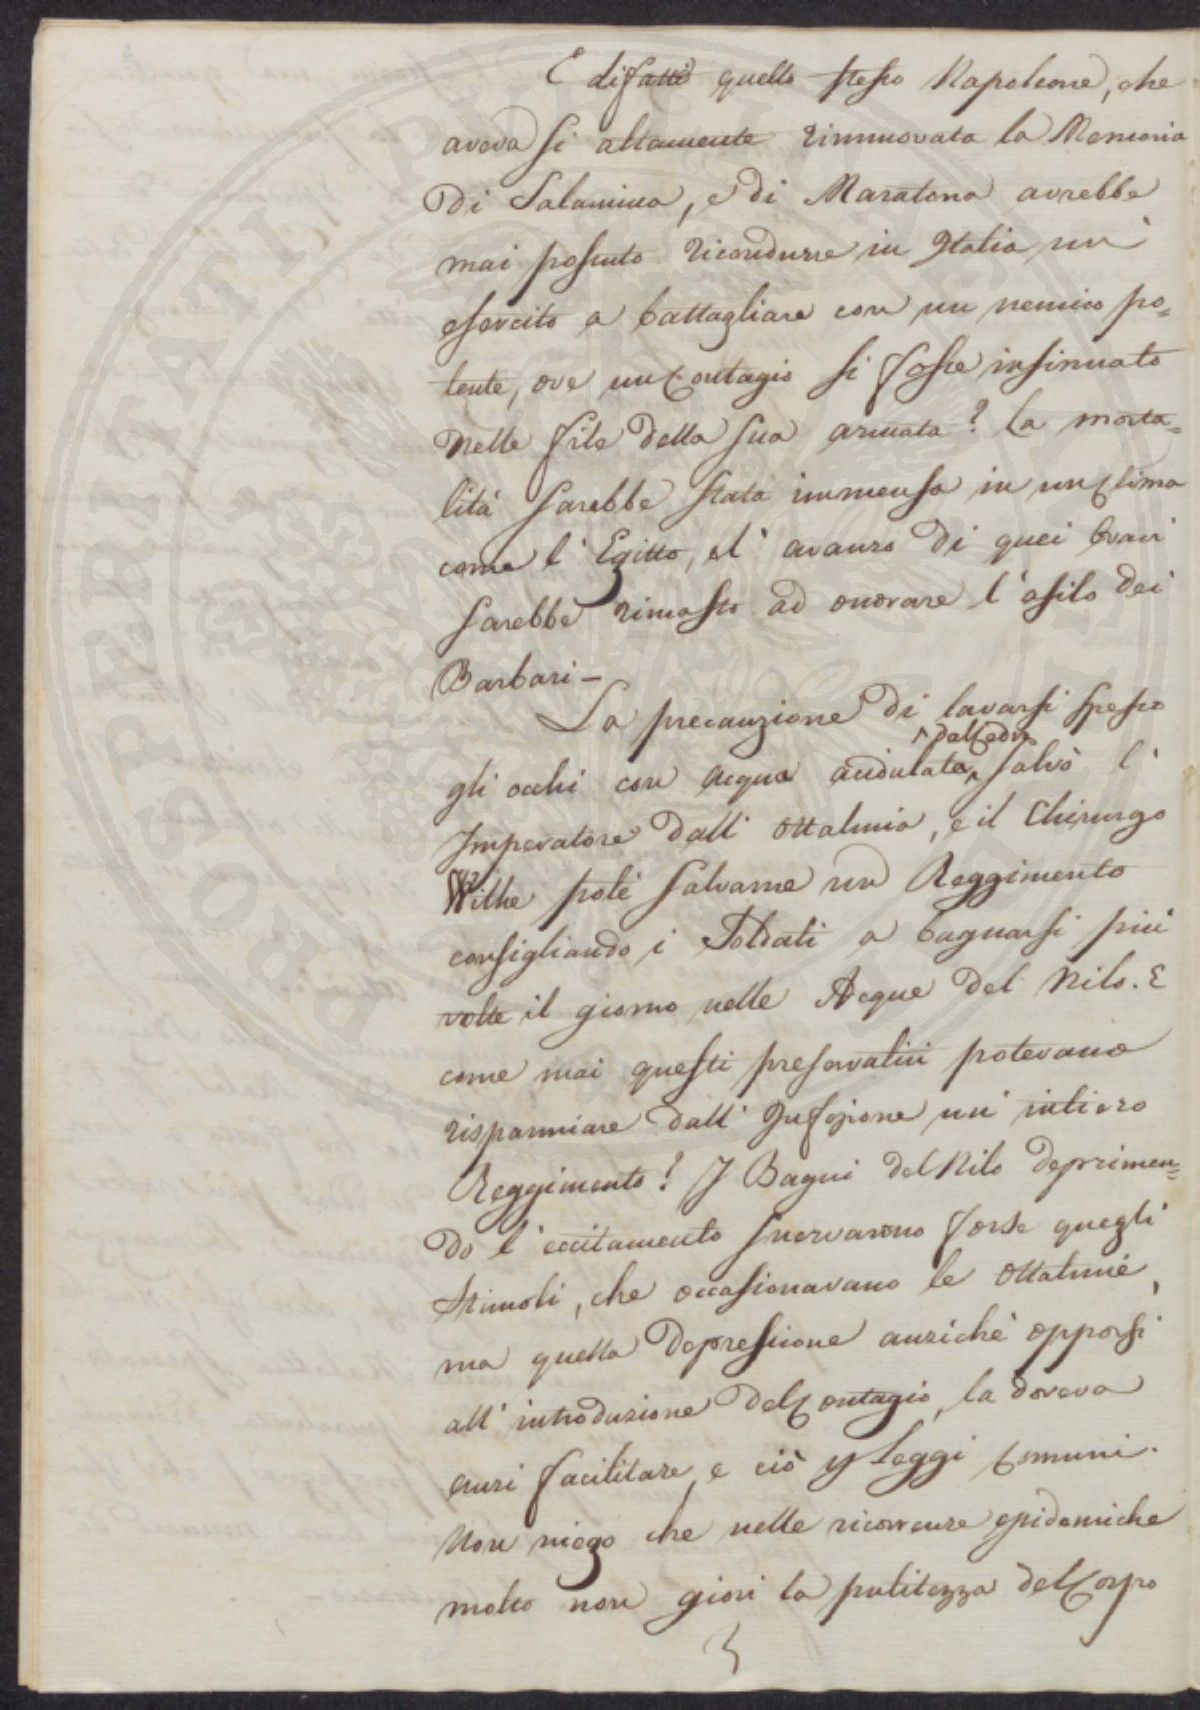 E difatti quello stesso Napoleone, che
aveva si altamente rinnuovata la Memoria
di Salamina, e di Maratona avrebbe
mai possuto ricondurre in Italia un'
esercito a battagliare con un nemico po=
tente, ove un Contagio si fosse insinuato
nelle file della sua armata? La morta=
lità sarebbe stata immensa in un Clima
come l'Egitto, e l'avanzo di quei bravi
sarebbe rimasto ad onorare l'asilo dei
Barbari –
La precauzione di lavarsi spesso
gli occhi con acqua acidulata, salvò l'
Imperatore dall'ottalmia, e il Chirurgo
potè salvarne un Reggimento
consigliando i Soldati a bagnarsi più
volte il giorno nelle Acque del Nilo. E
come mai questi preservativi potevano
risparmiare dall'Infezione un'intiero
Reggimento? I Bagni del Nilo deprimen=
do l'eccitamento snervarono forse quegli
stimoli, che occasionavano le ottalmie,
ma quella depressione anzichè opporsi
all'introduzione del Contagio, la doveva
anzi facilitare, e ciò p leggi Comuni.
Non niego che nelle ricorrenze epidemiche
molto non giovi la pulitezza del Corpo
PROSPERITATI PVBLICAE